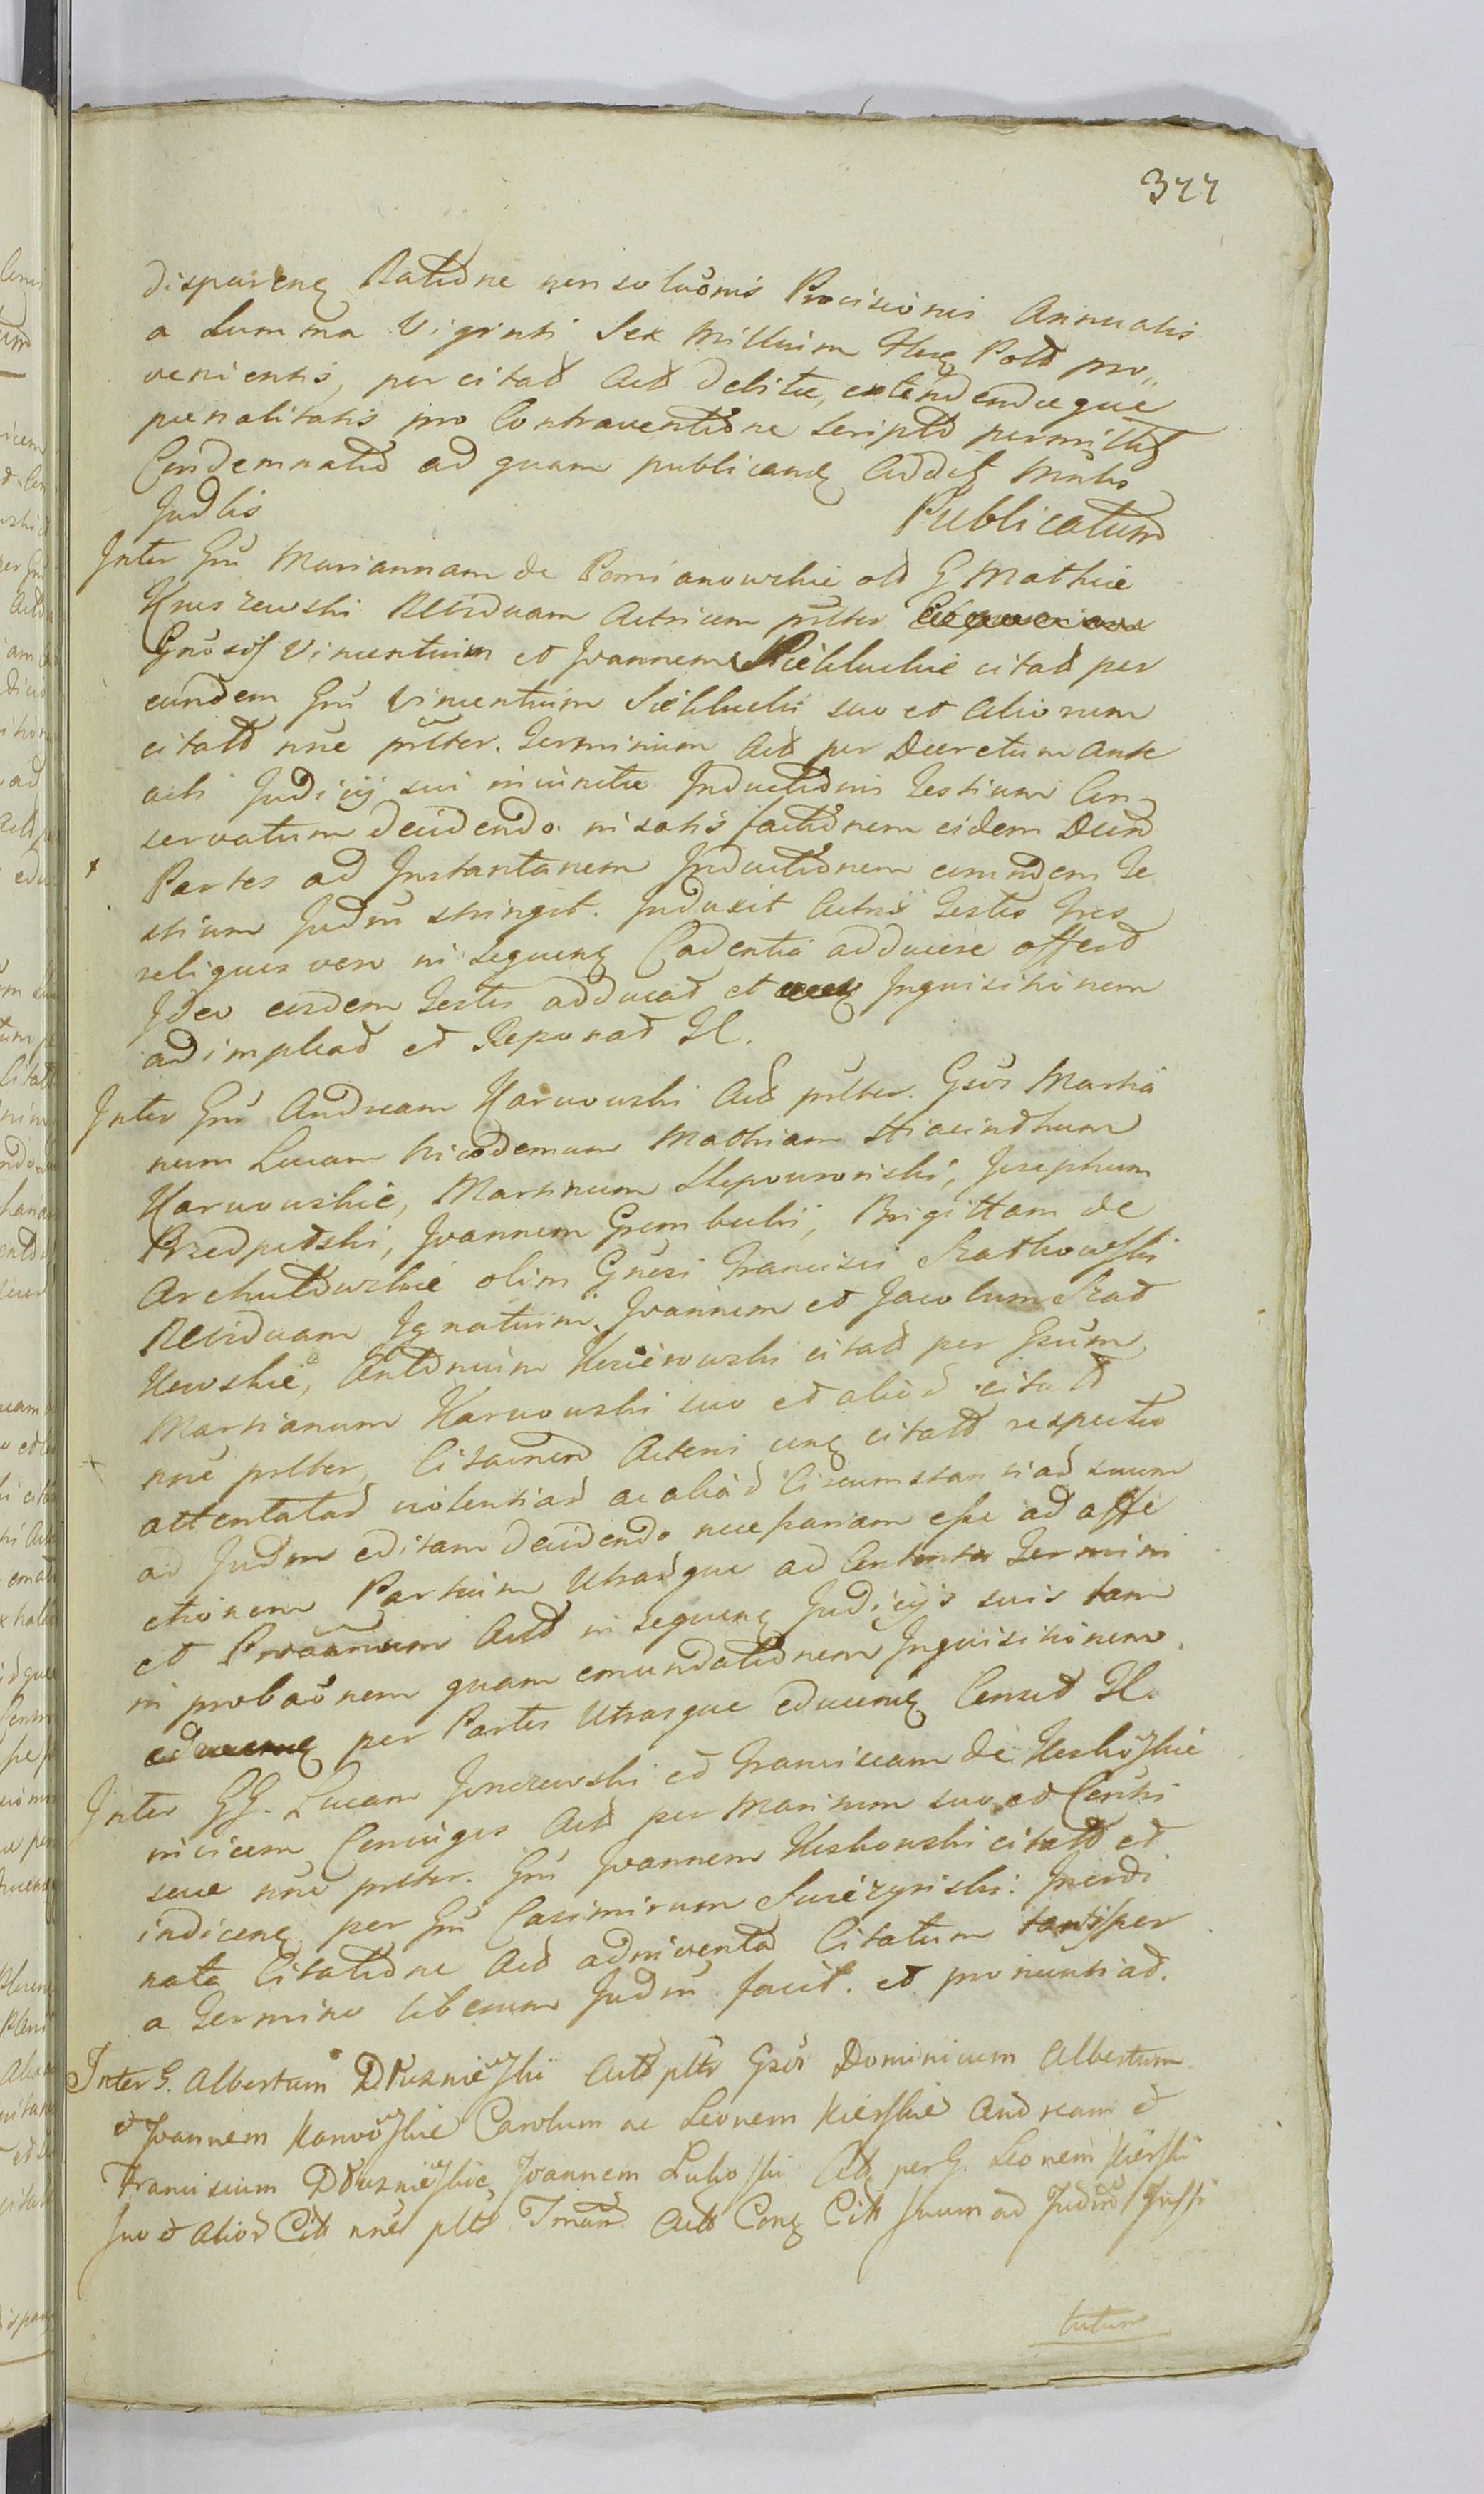 377
disparenę Ratiōne non solūonis Procisionis Annualis
a Summa Viginti Sex Millium flen. Polō pro„
venientis, per citað Actð debitæ, extendendæque
pœnalitatis pro Contraventiōne Scripto permittit
Condemnatio ad quam publicandę addit Mnlio
Judlis Publicatum
Inter Gñ Mariannam de Pomianowskie olð G Mathiæ
Kruszewski Relictuam Actricem pršter
Gñosqȝ Vincentium et Joannem Siekluckie citað per
eundem Gñ Vincentium Siekluchi suo et aliorum
citatð nñe pršter. Terminum Actð per Decretum ante
acti Judicij sui iniunctæ Inductiōnis Testium Con-
servatum decidendo in satisfactiōnem eidem Decrð
Partes ad Instantanem Inductiōnem eorundem Te
stium Judm stringit. Induxit Actrix Testes tres
reliquos vero in sequenę Cadentia adducere offert
Ideo eosdem Testes adducað et Inquisitionem
adimpleað et Reponað Jl.
Inter Gñ Andream Karwowski Actð pršter. Gños Martia
num Lucam Nicodemum Mathiam Hiacinthum
Karwowskie, Martinum Slepowronski, Josephum
Przedpełski, Joannem Grembecki, Brigittam de
Archutowskie olim Gñosi Francisci Szatkowski
Relictuam Ignatium, Joannem et Jacobum Szat
kowskie, Antonium Kisierowski citað per Gñsum
Martianum Karwowski suo et aliorð citatð
nñe pršter, Citatiōnem Acteni cenę citatð respectu
attentatarð violentiarð ac aliarð Circumstantiarð suum
ad Judm editam decidendo necessariam esse ad affe
ctionem Partium Utrasque ad Contenta Termini
et Proāmum Actð in sequenę Judicijs suis tam
in probāonem quam emundatiōnem Inquisitionem
per Partes Utrasque educenę Censet Jl.
Inter GG. Lucam Jonczewski et Franciscam de Keskowskie
invicem Coniuges Actð per Maritum suo et Consorti
suæ nñe pršter. Gñ Joannem Keskowski citatð et
indicenę per Gñ Casimirum Swierzynski. Inordi
nata Citatiōne Actð adinventa Citatum tantisper
a Termino liberum Judm facit. et pronuntiað.
Inter G. Albertum Druzniewski Actð pltr Gños Dominicum Albertum
et Joannem Karwowskie Carolum ac Leonem Kierskie Andream et
Franciscum Druzniewskie, Joannem Luboski Citð per G. Leonem Kierski
suo et aliorð Citt nñe pltr Tmnum Actð Conę Citt suum ad Judm Insti
tutum